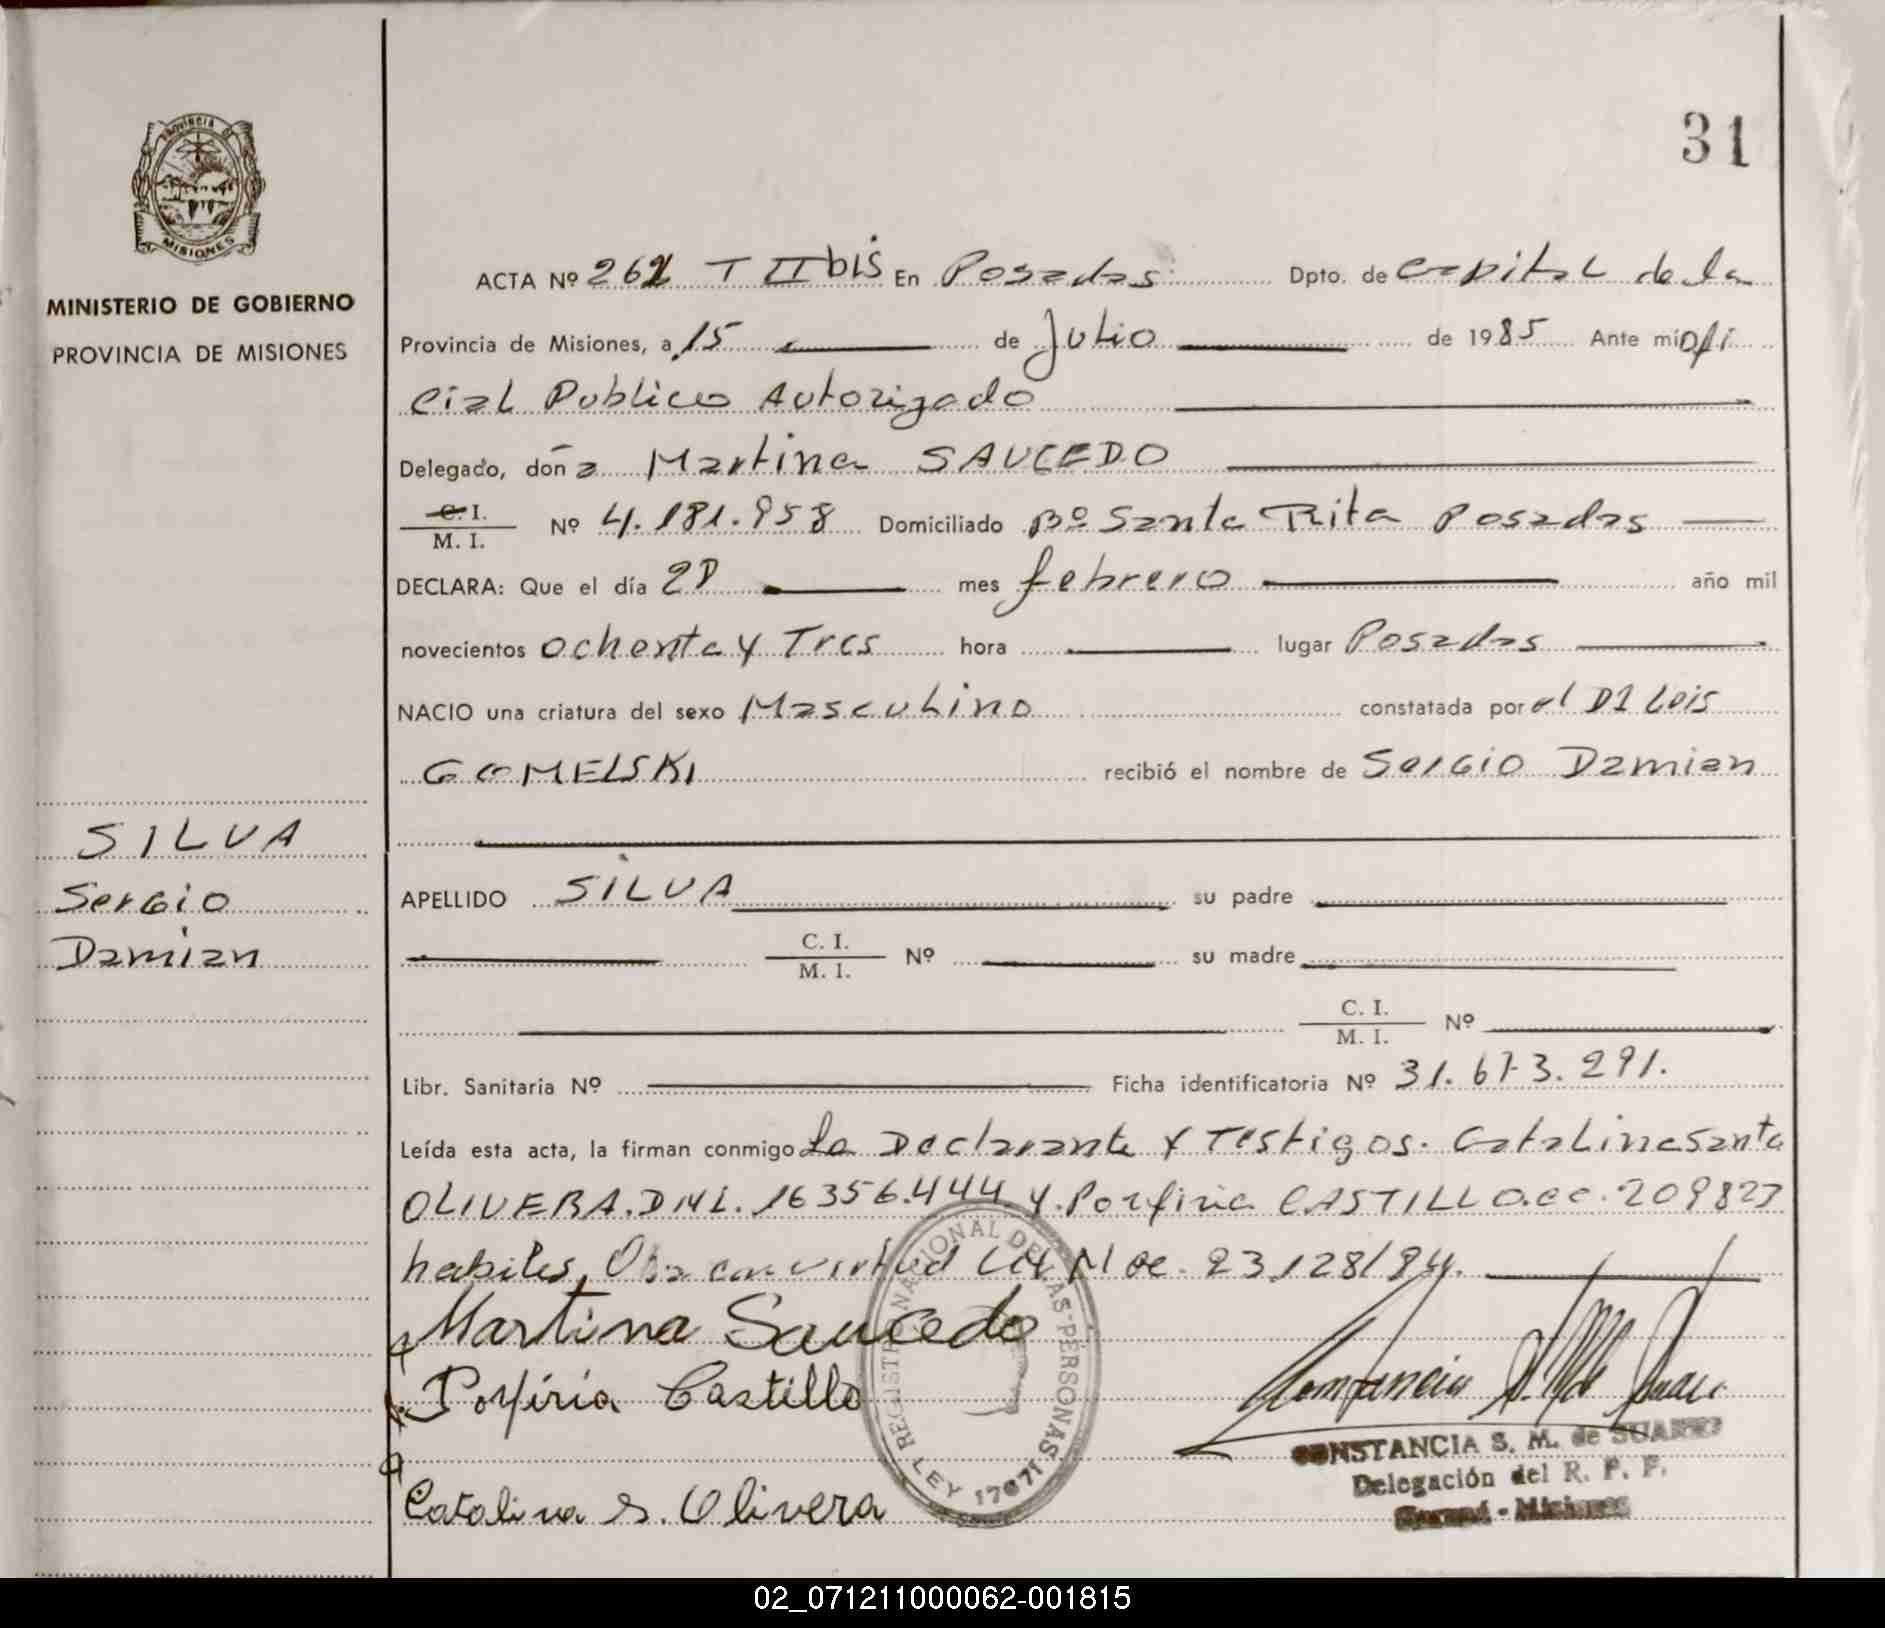 31
PROVINCIA DE
MISIONES
MINISTERIO DE GOBIERNO
PROVINCIA DE MISIONES
ACTA Nº 262 T II bis En Posadas Dpto. de Capital de la
Provincia de Misiones, a 15 de Julio de 1985 Ante mi ofi
cial Publico Autorizado
Delegado, doña Martina SAUCEDO
C. I.
M. I. Nº 4.181.958 Domiciliado Bº Santa Rita Posadas
DECLARA: Que el día mes febrero año mil
novecientos ochenta y Tres hora lugar Posadas
NACIO una criatura del sexo Masculino constatada por el
GOMELSKI recibió el nombre de Sergio Damian
SILVA
Sergio
Damian
APELLIDO SILVA su padre
C. I.
M. I. Nº su madre
C. I.
M. I. Nº
Libr. Sanitaria Nº Ficha identificatoria Nº 31.673.291.
Leída esta acta, la firman conmigo La Declarante y Testigos. Catalina Santa
OLIVERA. DNI. 16356.444 y Porfiria CASTILLO. CC. 209827
habiles, Obra en virtud Ley N 23.128/84.
Martina Saucedo
Porfiria Castillo
Catalina S. Olivera
REGISTRO NACIONAL DE LAS PERSONAS
LEY 17671
CONSTANCIA S. M. de SUAREZ
Delegación del R. P. P.
Misiones
02_071211000062-001815